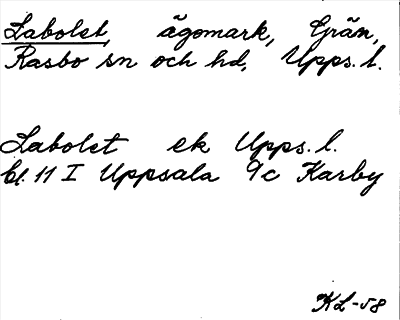 Labolet, ägomark, Grän,
Rasbo sn och hd, Upps. l.
Labolet ek Upps. l.
bl. 11 I Uppsala 9c Karby
KL-58